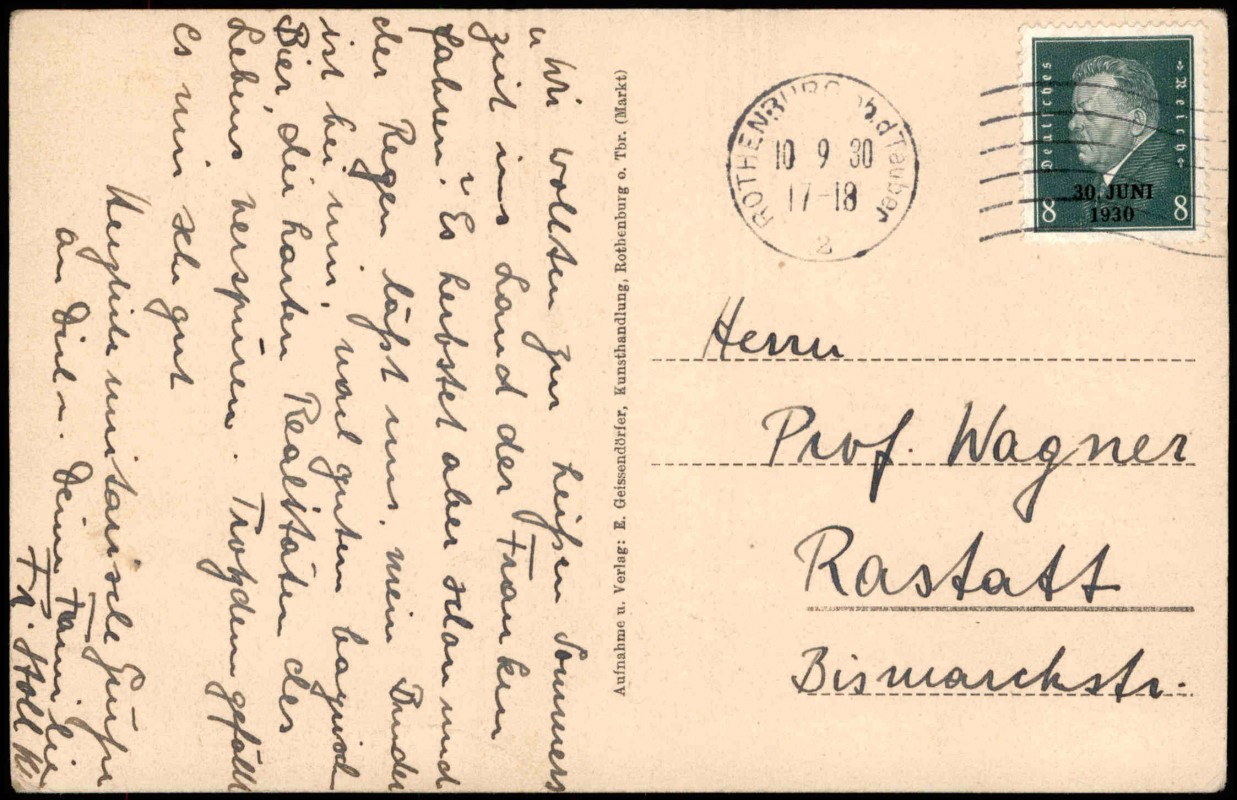 „ Wir wollten zur heißen Sommers
zeit ins Land der Franken
fahren." Es herbstet aber schon und
der Regen läßt uns, mein Bruder
ist bei mir, nach gutem bayrisch
Bier, die harten Realitäten des
Lebens verspüren. Trotzdem gefällt
es mir sehr gut
Herzliche Grüße
an Dich u. Deine Familie
Fr. Holl
Aufnahme u. Verlag: E. Geissendörfer, Kunsthandlung, Rothenburg o. Tbr. (Markt)
ROTHENBURG ob d Tauber
10 9 30
17-18
2
Deutsches Reich
30. JUNI
1930
8 8
Herrn
Prof. Wagner
Rastatt
Bismarckstr.